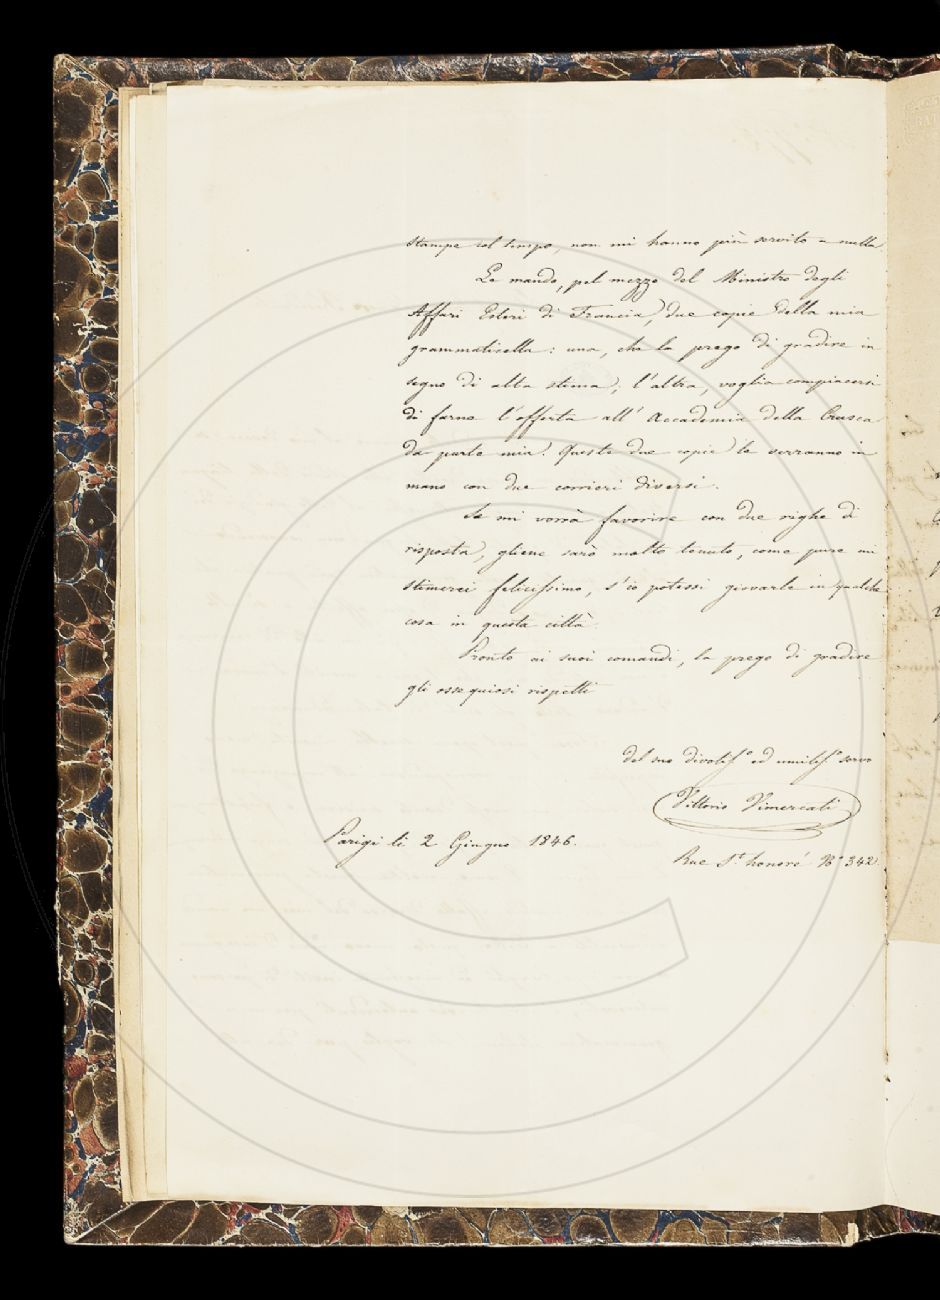 stampe col tempo, non mi hanno più servito a nulla
Le mando, pel mezzo del Ministro degli
Affari Esteri di Francia, due copie della mia
grammaticella: una, che la prego di gradire in
segno di alta stima; l'altra, voglia compiacersi
di farne l'offerta all'Accademia della Crusca
da parte mia. Queste due copie le verranno in
mano con due corrieri diversi.
Se mi vorrà favorire con due righe di
risposta, gliene sarò molto tenuto, come pure mi
stimerei felicissimo, s'io potessi giovarle in qualche
cosa in questa città.
Pronto ai suoi comandi, la prego di gradire
gli ossequiosi rispetti
del suo divotissº ed umilissº servo
Vittorio Vimercati
Parigi li 2 Giugno 1846.
Rue St. honoré Nº 342.